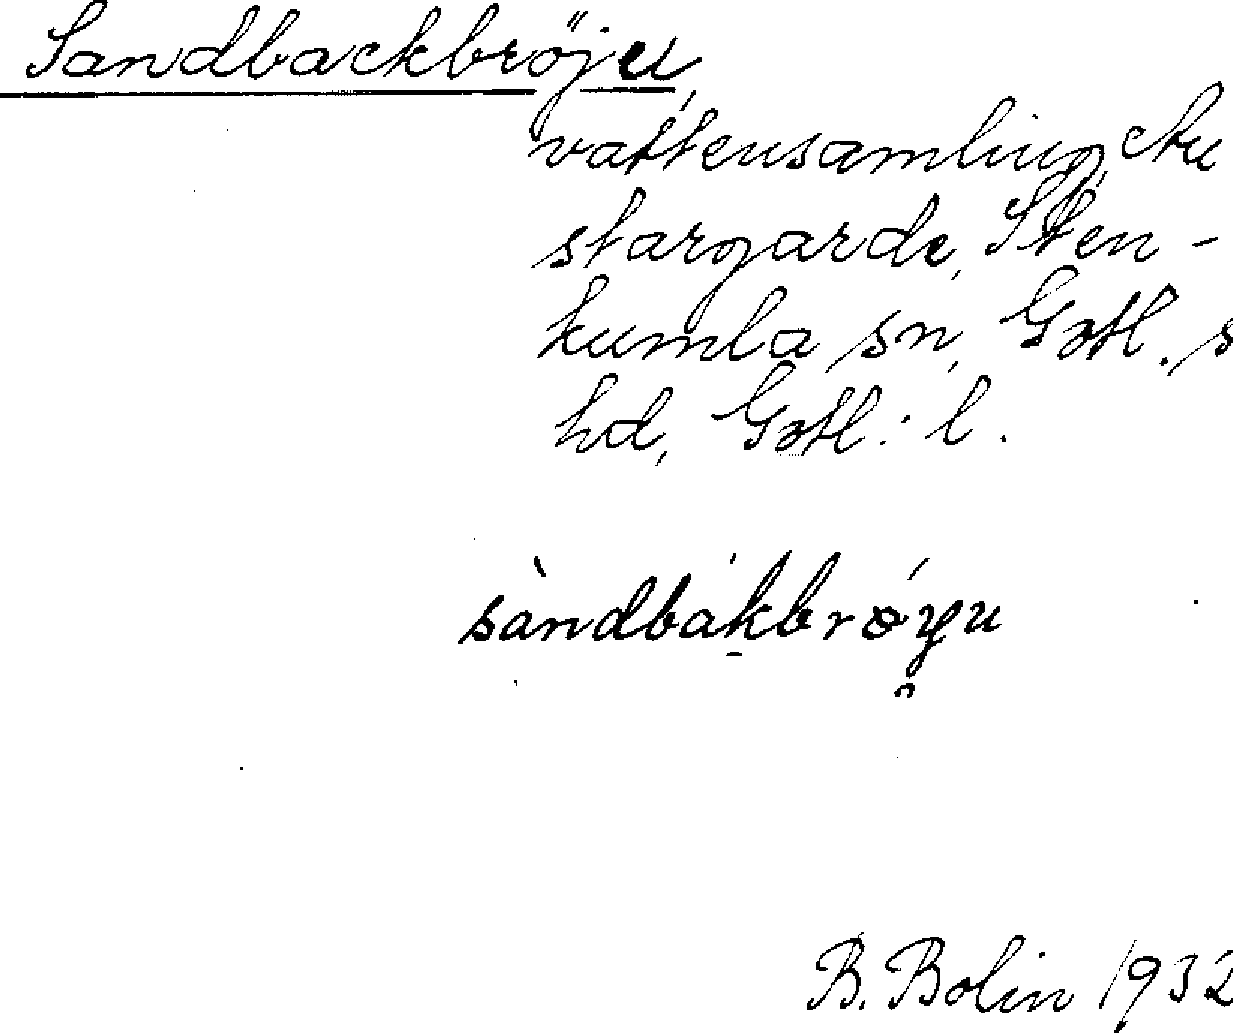 Sandbackbröju,
vattensamling, Au
stargarde, Sten-
kumla sn, Gotl. s
hd, Gotl: l.
sàndbakbrøyu
B. Bolin 1932